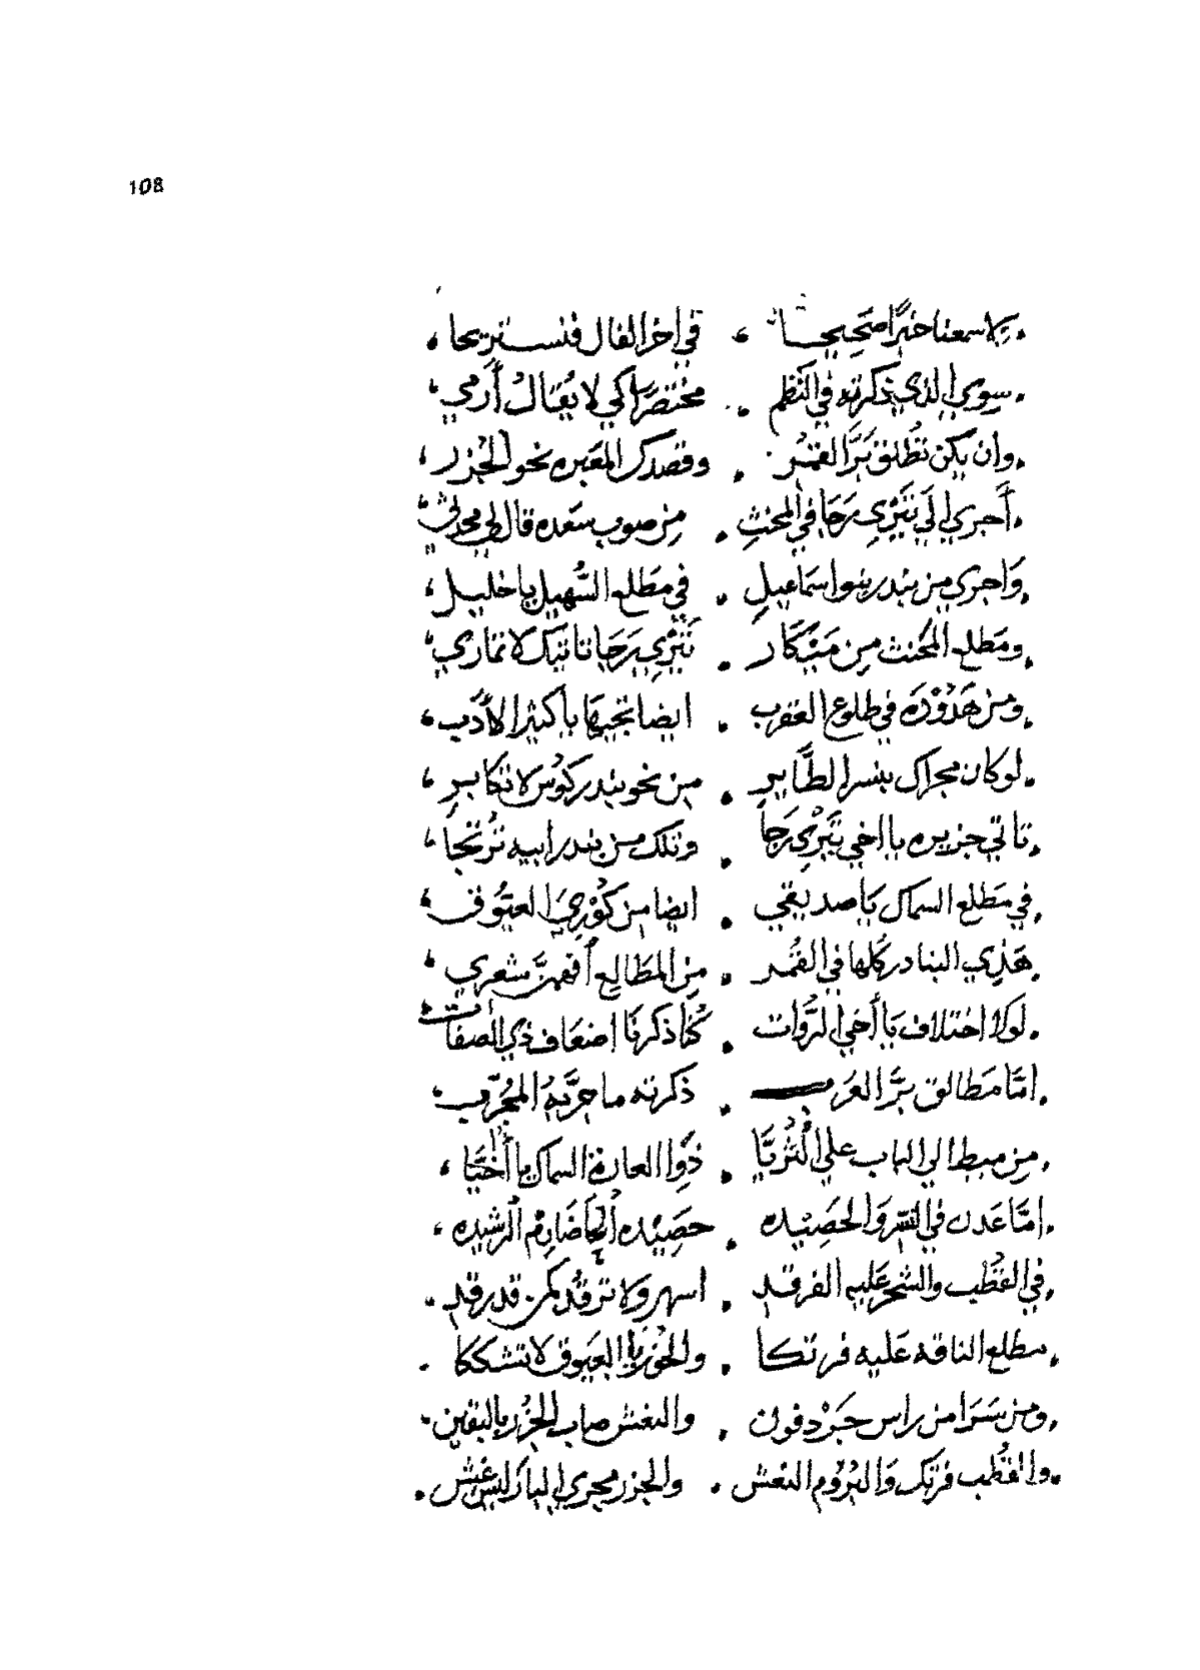 108
ولا سمعنا خبرًا صحيحا ، في اخر الفال فنستريحا ،
سوي الذي ذكرته في النظم . مختصرًا كي لا يُقالُ أرمي ،
وان يكن تُطلق بَرَّ القمُر . وقصدك المغبره نحو الجُزر ،
أجري الي تَيَزي رَجَا في المحنثِ . من صوب سعده قال لي محدثي ،
وَاجري من بندر بنوا سماعيلِ . في مطلع السُّهيل يا خليل ،
ومَطلع المحنث من مَنْكَار . تَيَزي رَجَا تاتيك لا تماري ،
ومن هَدُوْدَه في طلوع العقرب . ايضا تجيها يا كثير الأدَب ،
لو كان مجراك بنسر الطَّايرِ . من نحو بندر كوُس لا تكابرِ ،
تاتي جزيره يا اخي تَيَزي رَجا . وتلك من بندر ابيه تُرتجا ،
في مَطلع السماك يَا صديقي . ايضا من كُوْري العيُّوق ،
هَذِي البنادر كلها في القُمر . مِن المَطَالِع أفهمنَّ شعري ،
لَولا اختلاف يَا أخي الرُّوات . كُنا ذكرنَا اضعَاف ذي الصفات
امَّا مَطالق برَّ العَرب . ذكرته ما جرَّبهُ المُجرّب ،
من ميط الي الباب علي الثُريَّا . ذَوا العارة السماك يا أُخَيَّا ،
امَّا عَدن في النسر وَالحَصِيْده . حصِيْده الحَاضَارِم الرشيده ،
في القُطب والشحر عَليه الفرقد . اسهر وَلا ترقُد كمن قد رقدِ .
مطلع الناقه عَليه فرتكا . والحُوْريا العيوق لا تشككا .
ومن سَرَا من راس جَرْدفون . والنعش صاب الجُزر باليقين .
والقُطب فرتَك وَالبُرُوم النعش . والجزر مجري البار ليس غِش .